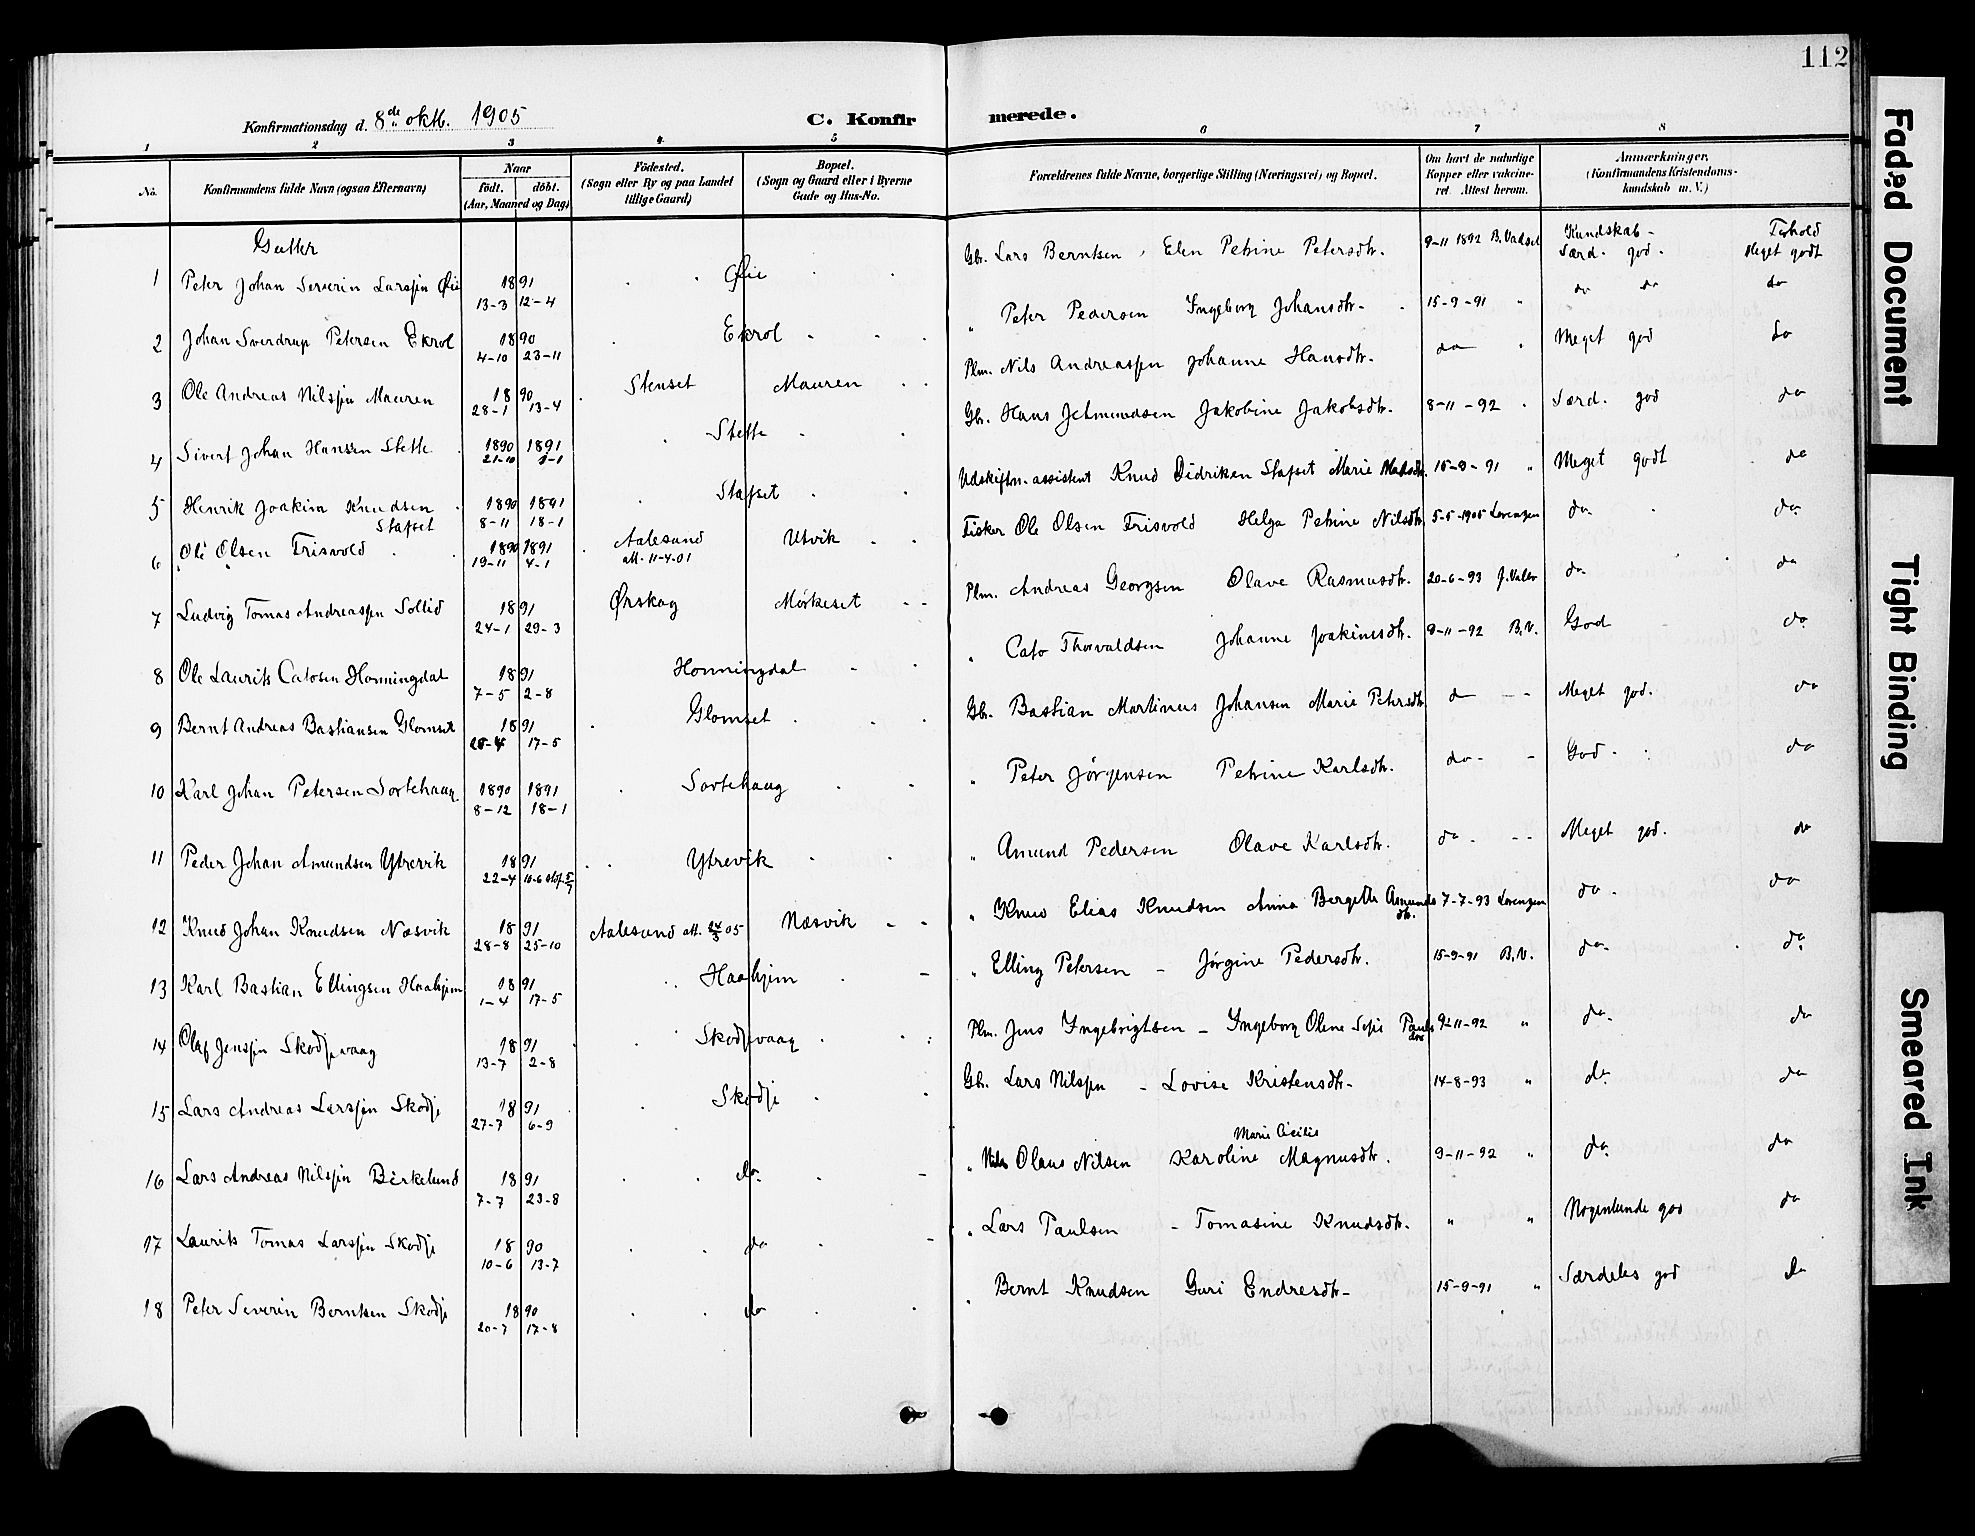 112
Konfirmationsdag d. 8de oktb. 1905
C. Konfirmerede.
1 2 3 4 5 6 7 8
No. Konfirmandens fulde Navn (ogsaa Efternavn) Naar födt. döbt. (Aar, Maaned og Dag) Födested. (Sogn eller By og paa Landet tillige Gaard) Bopæl. (Sogn og Gaard eller i Byerne Gade og Hus-No. Forældrenes fulde Navne, borgerlige Stilling (Næringsvei) og Bopæl. Om havt de naturlige Kopper eller vakcineret. Attest herom. Anmærkninger. (Konfirmandens Kristendomskundskab m. V.)
Gutter
Kundskab - Forhold
1 Peter Johan Severin Larssen Øie 1891 13-3 12-4 Øie Gb. Lars Berntsen, Elen Petrine Petersdtr. 9-11 1892 B. Vadset Særd. god. Meget godt
2 Johan Sverdrup Petersen Ekrol 1890 4-10 23-11 Ekrol " Peter Pedersen Ingeborg Johansdtr. 15-9-91 " do do do
3 Ole Andreas Nilssen Mauren 1890 28-1 13-4 Stenset Mauren Plm. Nils Andreassen Johanne Hansdtr. do " Meget god do
4 Sivert Johan Hansen Stette 1890 1891 21-10 1-1 Stette Gb. Hans Jetmundsen Jakobine Jakobsdtr. 8-11-92 Særd. god do
5 Henrik Joakim Knudsen Stafset 1890 1891 8-11 18-1 Stafset Udskiftn. assistent Knud Didriksen Stafset Marie Madsdtr. 15-9-91 " Meget godt do
6 Ole Olsen Frisvold 1890 1891 19-11 4-1 Aalesund att. 11-4-01 Utvik Fisker Ole Olsen Frisvold Helga Petrine Nilsdtr. 5-5-1905 Lorenzen do. do.
7 Ludvig Tomas Andreassen Sollid 1891 24-1 29-3 Ørskog Mørkeset Plm. Andreas Georgsen Olave Rasmusdtr. 20-6-93 do do
8 Ole Laurits Catosen Honningdal 1891 7-5 2-8 Honningdal " Cato Thorvaldsen Johanne Joakimsdtr. 9-11-92 B.V. God do.
9 Bernt Andreas Bastiansen Glomset 1891 17-5 Glomset Gb. Bastian Martinus Johansen Marie Petersdtr. do Meget god. do
10 Karl Johan Petersen Sortehaug. 1890 1891 8-12 18-1 Sortehaug " Peter Jørgensen Petrine Karlsdtr. do - God. do
11 Peder Johan Amundsen Ytrevik 1891 22-4 Ytrevik " Amund Pedersen Olave Karlsdtr. do. -- Meget god. do
12 Knud Johan Knudsen Næsvik 1891 28-8 25-10 Aalesund att. 05 Næsvik " Knud Elias Knudsen Anna Bergette Amundsdtr. 7-7-93 Lorenzen do. do
13 Karl Bastian Ellingsen Haahjem 1891 1-4 17-5 Haahjem " Elling Petersen - Jørgine Pedersdtr. 15-9-91 B.V. do. do
14 Olaf Jenssen Skodjevaag 1891 13-7 2-8 Skodjvaag Plm. Jens Ingebrigtsen - Ingeborg Oline Paulsdtr 9-11-92 " do. do
15 Lars Andreas Larssen Skodje 1891 27-7 6-9 Skodje Gb. Lars Nilssen - Lovise Kristensdtr. 14-8-93 " do. do
16 Lars Andreas Nilssen Birkelund 1891 7-7 23-8 do. " Nils Olaus Nilsen Karoline Marie Cicilie Magnusdtr. 9-11-92 " do. do
17 Laurits Tomas Larssen Skodje 1890 10-6 13-7 do " Lars Paulsen - Tomasine Knudsdtr. " " Nogenlunde god do
18 Peter Severin Berntsen Skodje 1890 20-7 17-8 do " Bernt Knudsen Guri Endresdtr. 15-9-91 " Særdeles god do
Faded Document
Tight Binding
Smeared Ink